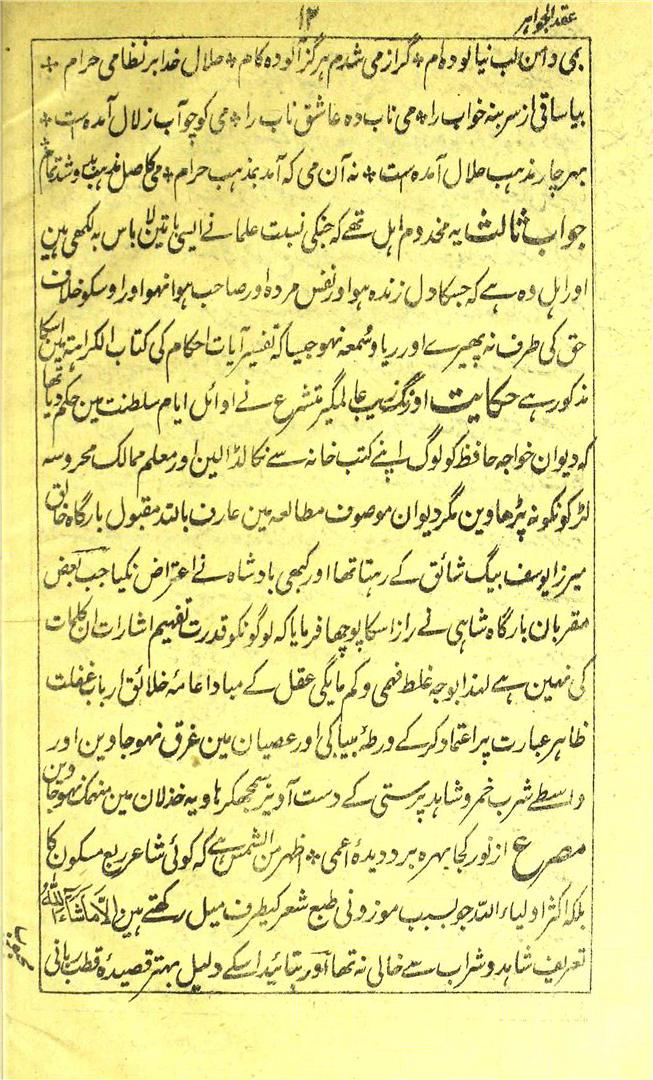 عقد الجواهر
١٣
بمی دامن لب نیالوده‌ام * گر از می شدم هرگز آلوده کام * حلال خدا بر نظامی حرام *
بیا ساقی از سر بنه خواب را * می ناب ده عاشق ناب را * می کو چو آب زلال آمده ست *
بهر چار مذہب حلال آمده ست * نه آن می که آمد بمذہب حرام * می کاصل مذہب بدو شد تمام
جواب ثالث یہ مخدوم اہل تھے کہ جنکی نسبت علما نے ایسی باتین لا باس بہ لکھی ہین
اور اہل وہ ہے کہ جسکا دل زندہ ہو اور نفس مردہ اور صاحب ہوا نہو اور اوسکو خلاف
حق کی طرف نہ پھیرے اور ریا و سُمعہ نہو جیسا کہ تفسیر آیات احکام کی کتاب الکراہتہ مین اسکا
مذکور ہے حکایت اورنگ زیب عالمگیر متشرع نے اوائل ایام سلطنت مین حکم دیا تھا
کہ دیوان خواجہ حافظ کو لوگ اپنے کتب خانہ سے نکالڈالین اور معلم ممالک محروسہ
لڑکونکو نہ پڑھاوین مگر دیوان موصوف مطالعہ مین عارف باللہ مقبول بارگاہ خالق
میرزا یوسف بیگ شائق کے رہتا تھا اور کبھی بادشاہ نے اعتراض نکیا جب بعض
مقربان بارگاہ شاہی نے راز اسکا پوچھا فرمایا کہ لوگونکو قدرت تفہیم اشارات ان کلمات
کی نہین ہے لہذا بوجہ غلط فہمی و کم مایگی عقل کے مبادا عامۂ خلائق ارباب غفلت
ظاہر عبارت پر اعتماد کر کے ورطۂ بیباکی اور عصیان مین غرق نہو جاوین اور
واسطے شرب خمر و شاہد پرستی کے دست آویز سمجھکر ہاویہ خذلان مین منہمک نہو جاوین
مصرع از نور کجا بہرہ برد دیدۂ اعمی * اظہر من الشمس ہے کہ کوئی شاعر ربع مسکون کا
بلکہ اکثر اولیاء اللہ جو بسبب موزونی طبع شعر کیطرف میل رکھتے ہین اِلَّا مَا شَاءَ اللّٰہُ
تعریف شاہد و شراب سے خالی نہ تھا اور بتائید اسکے دلیل بہتر قصیدہ قطب ربانی
محبوب